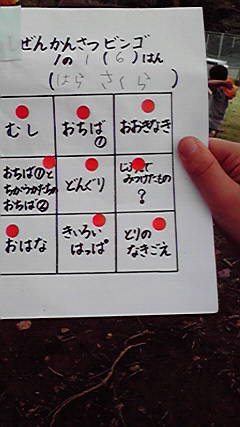 しぜんかんさつビンゴ
1の1(6)はん
(はら さくら)
むし
おちば
①
おおきなき
おちば①と
ちがうかたちの
おちば②
どんぐり
じぶんで
みつけたもの
?
おはな
きいろい
はっぱ
とりの
なきごえ